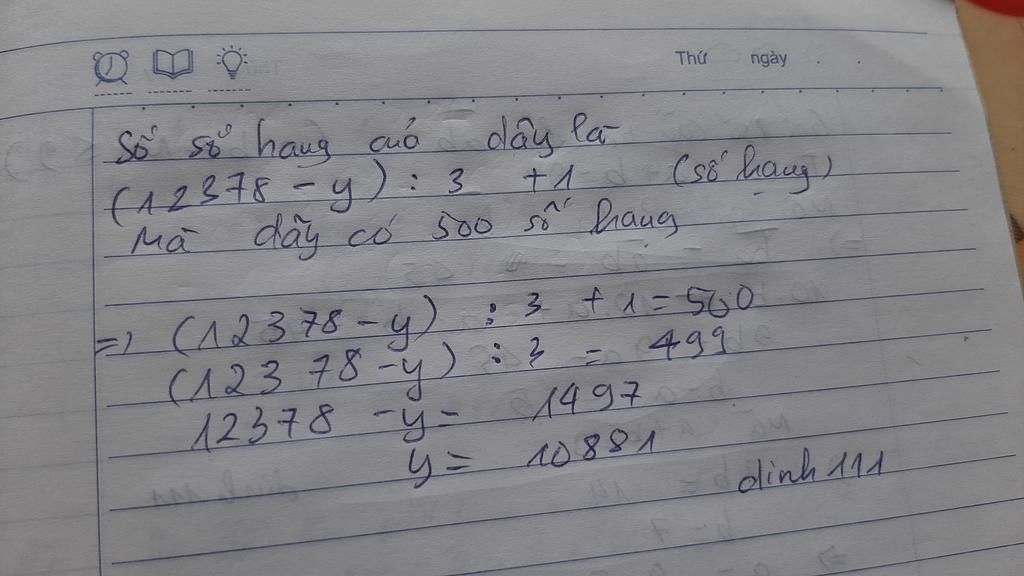 Thứ ngày
Số số hang củả dãy là
(12378 - y) : 3 + 1 (số hang)
Mà dãy có 500 số hang
=> (12378 - y) : 3 + 1 = 500
(12378 - y) : 3 = 499
12378 - y = 1497
y = 10881
dinh 111